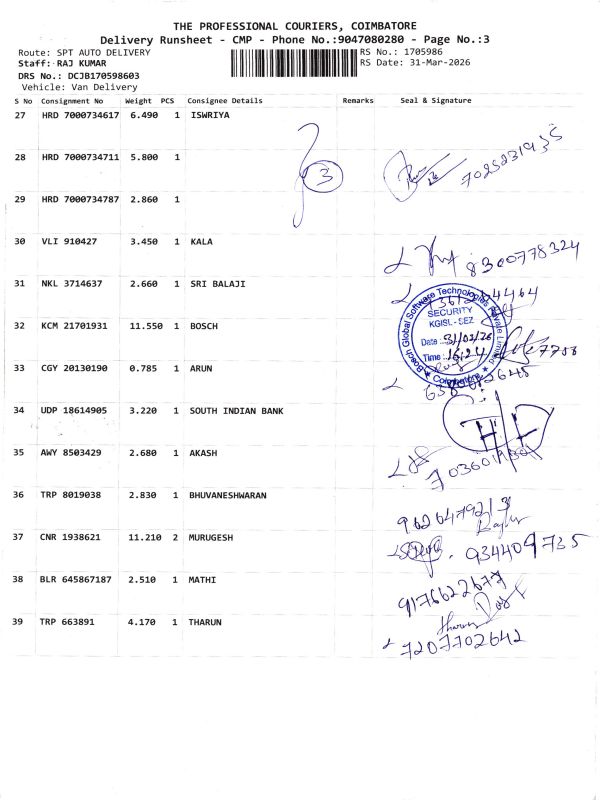 THE PROFESSIONAL COURIERS, COIMBATORE
Delivery Runsheet - CMP - Phone No.:9047080280 - Page No.:3
Route: SPT AUTO DELIVERY RS No.: 1705986
Staff: RAJ KUMAR RS Date: 31-Mar-2026
DRS No.: DCJB170598603
Vehicle: Van Delivery
S No Consignment No Weight PCS Consignee Details Remarks Seal & Signature
27 HRD 7000734617 6.490 1 ISWRIYA
3
28 HRD 7000734711 5.800 1 7025231935
29 HRD 7000734787 2.860 1
30 VLI 910427 3.450 1 KALA 8300778324
31 NKL 3714637 2.660 1 SRI BALAJI
Bosch Global Software Technologies Private Limited
SECURITY
KGISL - SEZ
32 KCM 21701931 11.550 1 BOSCH
Date :
Time : 16:24
Coimbatore
33 CGY 20130190 0.785 1 ARUN
34 UDP 18614905 3.220 1 SOUTH INDIAN BANK
35 AWY 8503429 2.680 1 AKASH
36 TRP 8019038 2.830 1 BHUVANESHWARAN
9626479213
37 CNR 1938621 11.210 2 MURUGESH 9344109735
38 BLR 645867187 2.510 1 MATHI 9176622677
39 TRP 663891 4.170 1 THARUN Tharun
7207702642